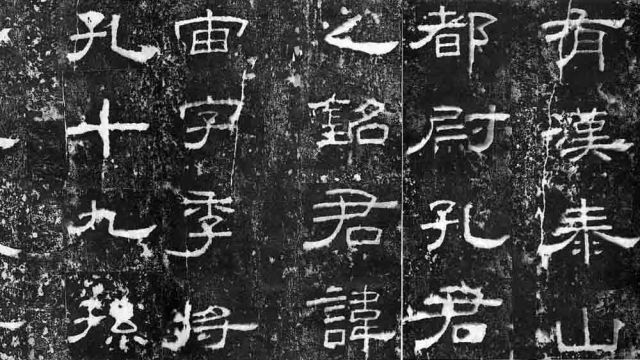 有漢泰山
都尉孔君
之銘君諱
宙字季將
孔十九孫